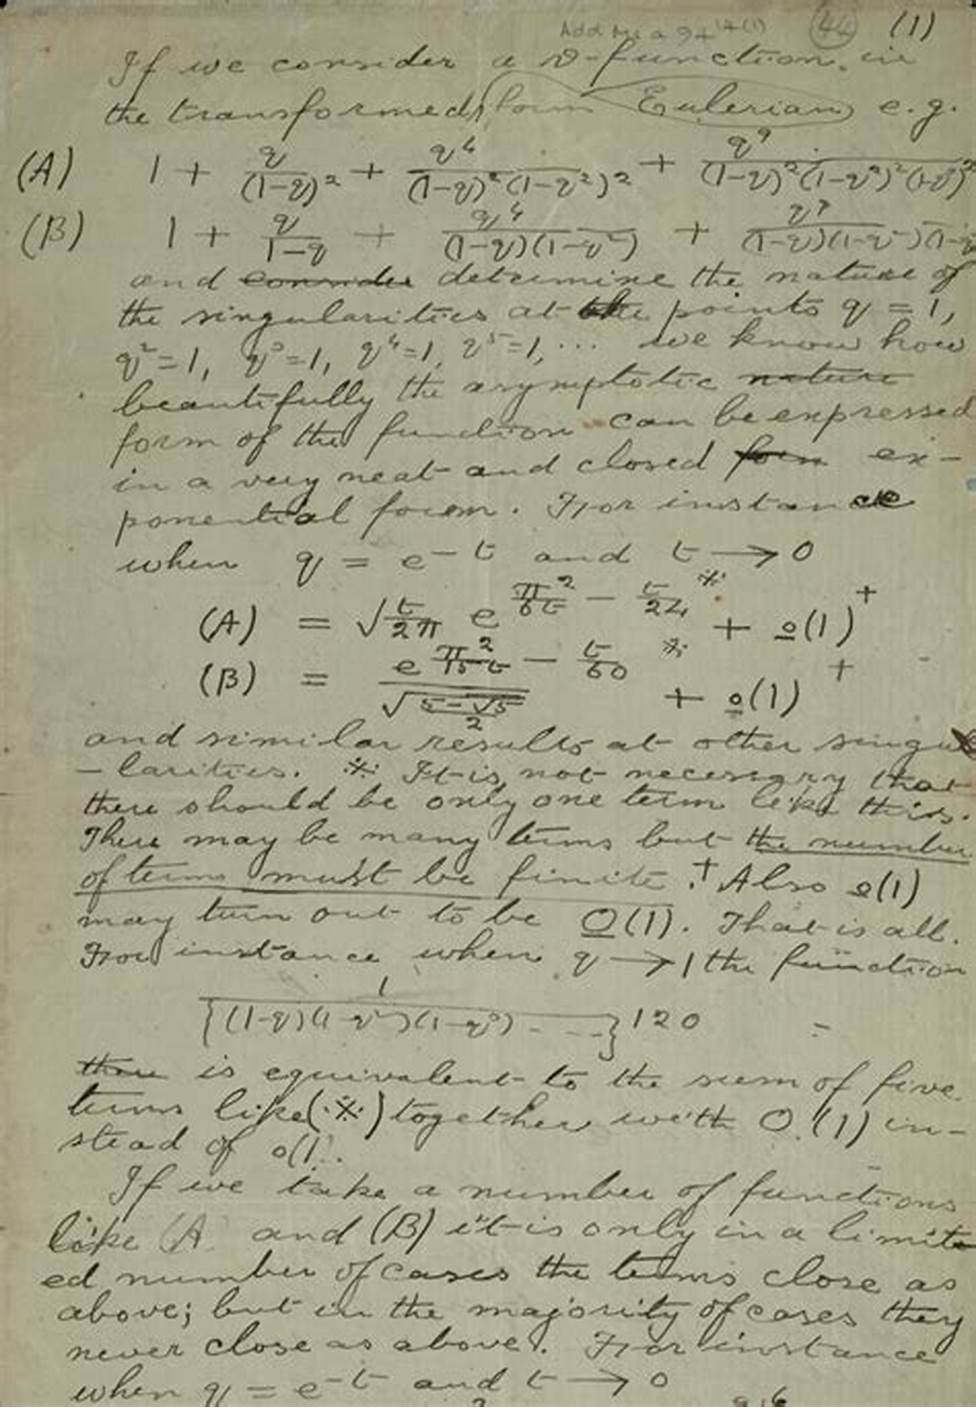 Add Ms a 94 14(1) 44 (1)
If we consider a ϑ-function in
the transformed form Eulerian e.g.
(A) 1 + q/(1-q)² + q⁴/(1-q)²(1-q²)² + q⁹/(1-q)²(1-q²)²(1-q³)²
(B) 1 + q/1-q + q⁴/(1-q)(1-q²) + q⁹/(1-q)(1-q²)(1-q
and consider determine the nature of
the singularities at the points q = 1,
q²=1, q³=1, q⁴=1, q⁵=1, ... we know how
beautifully the asymptotic nature
form of the function can be expressed
in a very neat and closed form ex-
ponential form. For instance
when q = e^-t and t → 0
(A) = √t/2π e^π²/6t - t/24 ※ + o(1) +
(B) = e^π²/15t - t/60 ※ / √5-√5/2 + o(1) +
and similar results at other singu
-larities. ※ It is not necessary that
there should be only one term like this.
There may be many terms but the number
of terms must be finite. + Also o(1)
may turn out to be O(1). That is all.
For instance when q → 1 the function
1/{(1-q)(1-q²)(1-q³) ... }120
there is equivalent to the sum of five
terms like (※) together with O(1) in-
stead of o(1).
If we take a number of functions
like (A) and (B) it is only in a limit
ed number of cases the terms close as
above; but in the majority of cases they
never close as above. For instance
when q = e^-t and t → 0